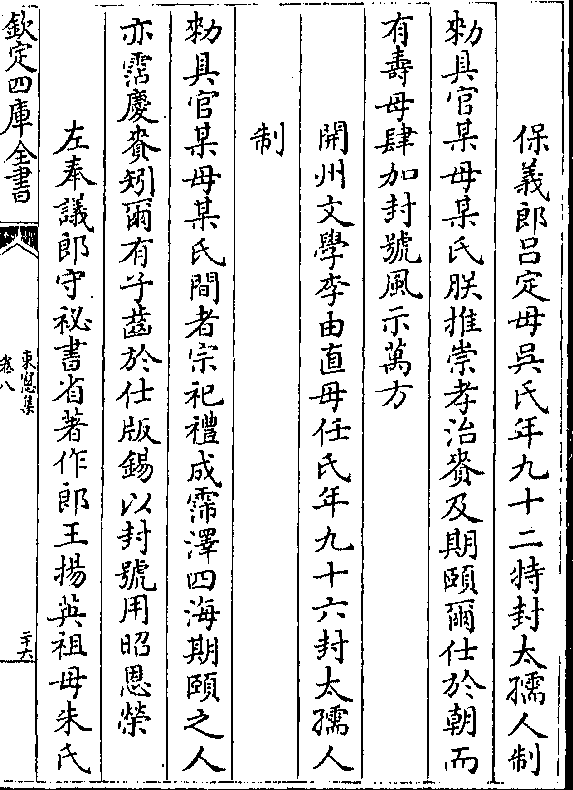 保義郎呂定母吳氏年九十二特封太孺人制
勑具官某母某氏朕推崇孝治賚及期頤爾仕於朝而
有壽母肆加封號風示萬方
開州文學李由直母任氏年九十六封太孺人
制
勑具官某母某氏間者宗祀禮成霈澤四海期頤之人
亦霑慶賚矧爾有子齒於仕版錫以封號用昭恩榮
左奉議郎守祕書省著作郎王揚英祖母朱氏
欽定四庫全書
東牕集
卷八
二十六